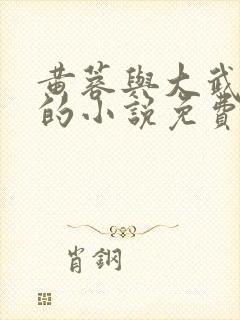 黄蓉與大武
的小說免費
肖鋼